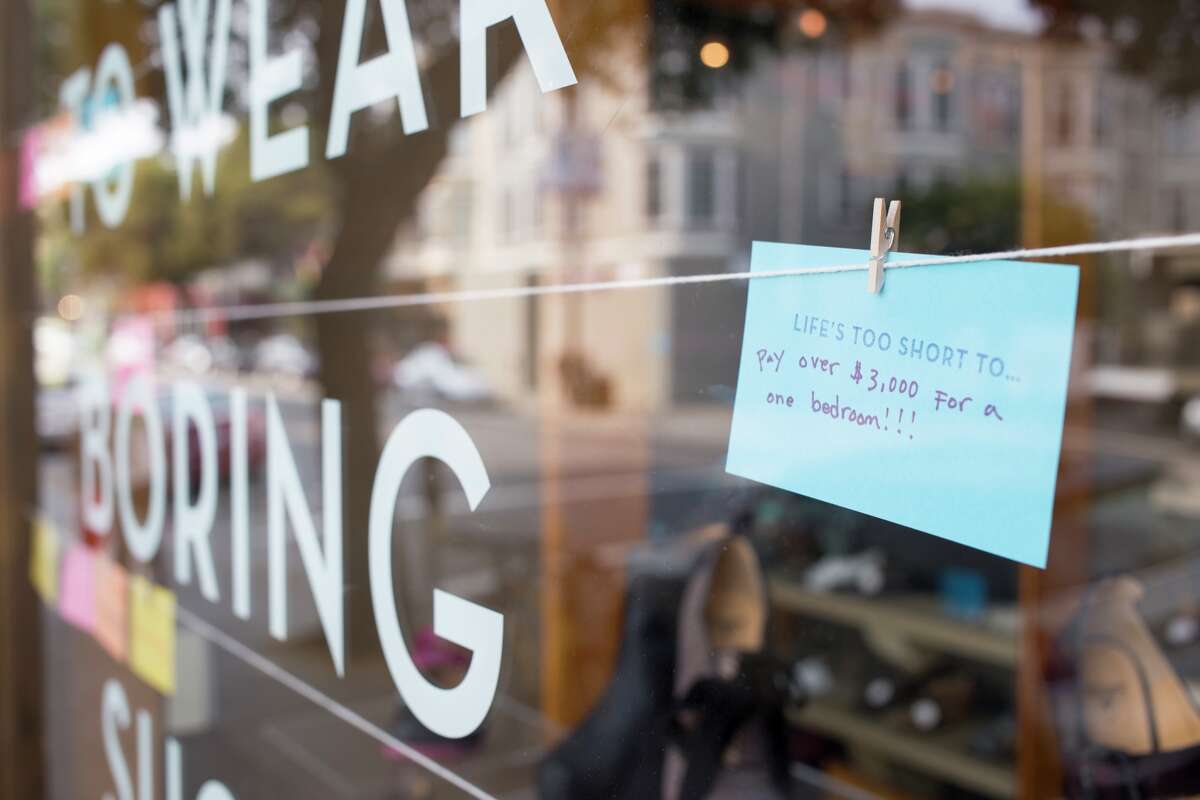 TO WEAR
BORING
LIFE'S TOO SHORT TO...
Pay over $3,000 For a
one bedroom!!!